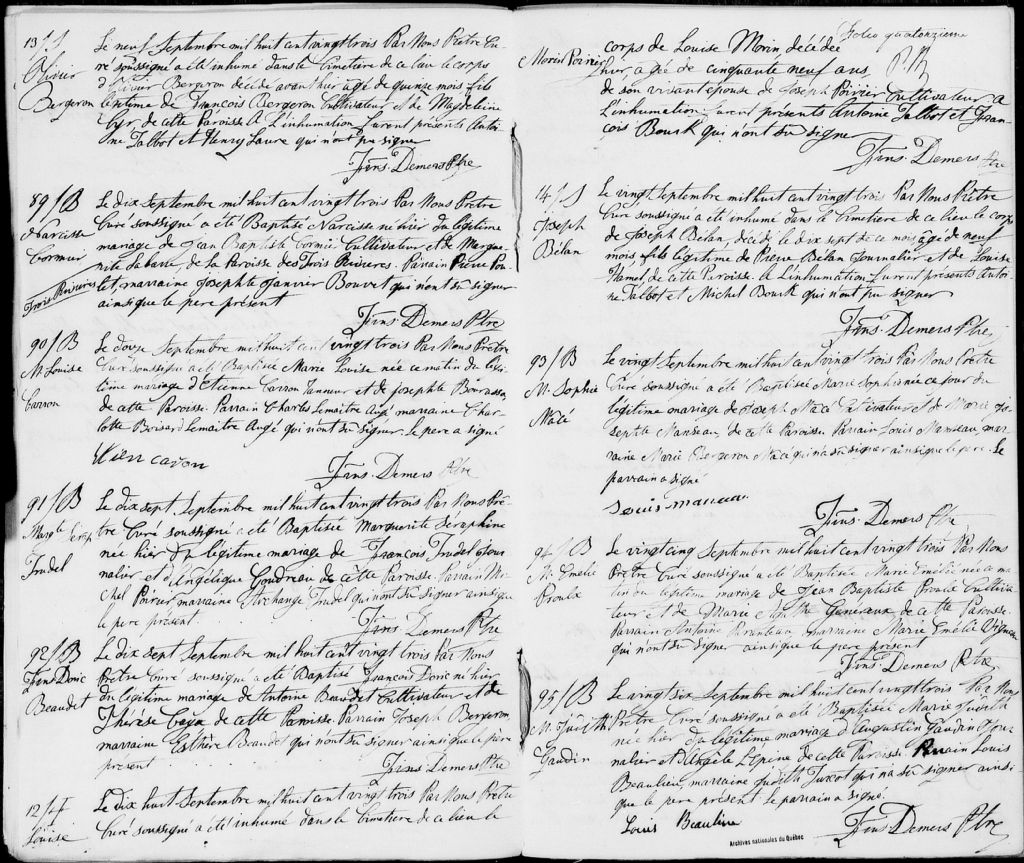 13/S
Olivier
Bergeron
Le neuf Septembre mil huit cent vingt trois Par Nous Prêtre Cu-
ré soussigné a été inhumé dans le Cimetière de ce lieu le corps
d'Olivier Bergeron décédé avant hier agé de quinze mois fils
légitime de François Bergeron Cultivateur et de Magdeleine
Cyr de cette Paroisse. A L'inhumation furent présents Antoi-
ne Talbot et Henry Laure qui n'ont pu signer
Frns. Demers Ptre
89/B
Narcisse
Cormier
Trois Rivieres
Le dix Septembre mil huit cent vingt trois Par Nous Prêtre
Curé soussigné a été Baptisé Narcisse né hier du légitime
mariage de Jean Baptiste Cormier Cultivateur et de Margue-
rite de la Paroisse des Trois Rivieres. Parrain Pierre
marraine Josephte Janvier Bouvet qui n'ont su signer
ainsi que le pere présent
Frns. Demers Ptre
90/B
M. Louise
Carron
Le douze Septembre mil huit cent vingt trois Par Nous Prêtre
Curé soussigné a été Baptisée Marie Louise née ce matin du légi-
time mariage d'Etienne Carron Tanneur et de Josephte Bourassa
de cette Paroisse. Parrain Charles Lemaitre Augé marraine Char-
lotte Boisard Lemaitre Augé qui n'ont su signer. le pere a signé
Etien caron
Frns. Demers Ptre
91/B
Marg te Serap
Trudel
Le dix sept Septembre mil huit cent vingt trois Par Nous Prê-
tre Curé soussigné a été Baptisée Marguerite Seraphine
née hier du légitime mariage de François Trudel Jour-
nalier et d'Angélique Goudreau de cette Paroisse. Parrain Mi-
chel Poirier marraine Archange Trudel qui n'ont su signer ainsi que
le pere présent.
Frns. Demers Ptre
92/B
Frns Doric
Beaudet
Le dix sept Septembre mil huit cent vingt trois Par Nous
Prêtre Curé soussigné a été Baptisé François Doric né hier
du légitime mariage de Antoine Beaudet Cultivateur et de
Therese de cette Paroisse. Parrain Joseph Bergeron,
marraine Esthere Beaudet qui n'ont su signer ainsi que le pere
présent
Frns Demers Ptre
12/S
Louise
Le dix huit Septembre mil huit cent vingt trois Par Nous Prêtre
Curé soussigné a été inhumé dans le Cimetiere de ce lieu le
Folio quatorzieme
Morin Poirier
corps de Louise Morin décédée
hier, agée de cinquante neuf ans
de son vivant épouse de Joseph Poirier Cultivateur. A
L'inhumation furent présents Antoine Talbot et Fran-
cois Bourk qui n'ont su signer
Frns. Demers Ptre
14/S
Joseph
Bélan
Le vingt Septembre mil huit cent vingt trois Par Nous Prêtre
Curé soussigné a été inhumé dans le Cimetiere de ce lieu le corps
de Joseph Bélan, décédé le dix sept de ce mois âgé de neuf
mois, fils légitime de Pierre Bélan Journalier et de Louise
Hamel de cette Paroisse. A L'inhumation furent présents Antoi-
ne Talbot et Michel Bourk qui n'ont pu signer
Frns. Demers Ptre
93/B
M. Sophie
Macé
Le vingt Septembre mil huit cent vingt trois Par Nous Prêtre
Curé soussigné a été Baptisée Marie Sophie née ce jour du
légitime mariage de Joseph Macé Cultivateur et de Marie Jo-
sephte Manseau, de cette Paroisse. Parrain Louis Manseau, mar-
raine Marie Bergeron Macé qui n'a su signer ainsi que le pere. Le
parrain a signé
Louis manceau
Frns. Demers Ptre
94/B
M. Emélie
Proulx
Le vingt cinq Septembre mil huit cent vingt trois Par Nous
Prêtre Curé soussigné a été Baptisée Marie Emélie née ce ma-
tin du légitime mariage de Jean Baptiste Proulx Cultiva-
teur et de Marie Genereux de cette Paroisse.
Parrain Antoine marraine Marie Emélie
qui n'ont su signer ainsi que le pere présent
Frns. Demers Ptre
95/B
M. Judith
Gaudin
Le vingt six Septembre mil huit cent vingt trois Par Nous
Prêtre Curé soussigné a été Baptisée Marie Judith
née hier du légitime mariage d'Augustin Gaudin Jour-
nalier et d'Angele Lépine de cette Paroisse. Parrain Louis
Beaulieu, marraine Judith Turcot qui n'a su signer ainsi
que le pere présent. Le parrain a signé.
Louis Beaulieu
Frns Demers Ptre
Archives nationales du Québec